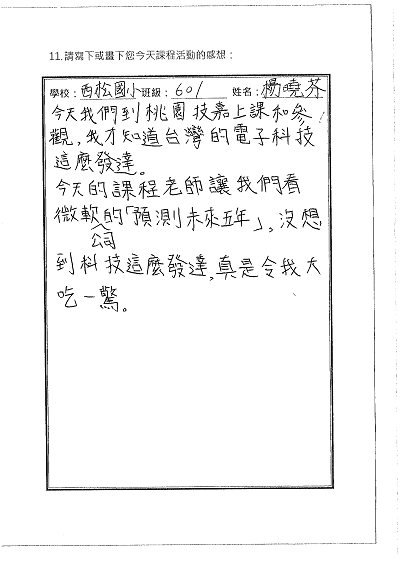 11.請寫下或畫下您今天課程活動的感想：
學校：西松國小班級：601 姓名：楊曉芥
今天我們到桃園技嘉上課和參
觀，我才知道台灣的電子科技
這麼發達。
今天的課程老師讓我們看
微軟公司的「預測未來五年」，沒想
到科技這麼發達，真是令我大
吃一驚。